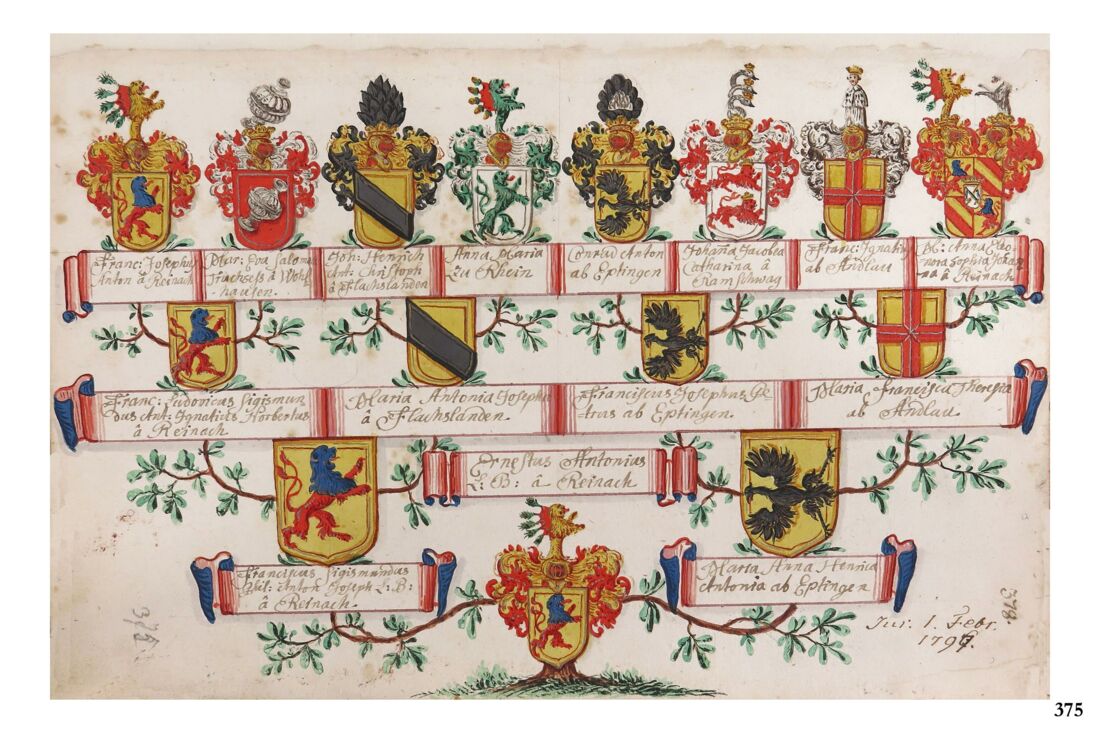 Franc: Josephus
Anton â Reinach
Mar: Eva Salomea
Truchsess â Wohl
hausen.
Joh: Henrich
Ant: Christoph
â Flachslanden
Anna Maria
Zu Rhein
Conrad Anton
ab Eptingen
Johana Jacobea
Catharina â
Ramschwag
Franc: Ignatiq
ab Andlau
M: Anna Eleo
nora Sophia
â Reinach
Franc: Ludovicus Sigismun
dus Ant: Ignatius Norbertus
â Reinach
Maria Antonia Josepha
â Flachslanden.
Franciscus Josephus
ab Eptingen.
Maria Francisca Theresia
ab Andlau
Ernestus Antonius
L: B: â Reinach
Franciscus Sigismundus
Anton Joseph L: B:
â Reinach
Maria Anna Henrica
Antonia ab Eptingen
Jur. 1. Febr.
375